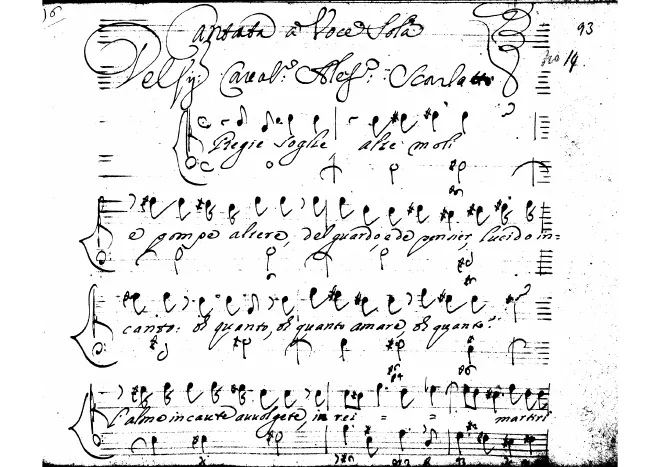 16
Cantata a Voce Sola
93
No 14
Del Sig: Caval.º Aless.º Scarlatti
Regie soglie alte moli
e pompe altere, del guardo, e de pensier, lucido in=
canto: oh quanto, oh quanto amare, oh quante.
l'alme incaute avvolgete, in rei = = martiri